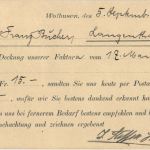 Wolhusen, den 5. Septemb
Franz Bücher, Langenth
Deckung unserer Faktura vom 12. Mai
Fr. 15.—, sandten Sie uns heute per Posta
, wofür wir Sie bestens dankend erkannt ha
uns bei fernerem Bedarf bestens empfehlen und b
chachtung und zeichnen ergebenst